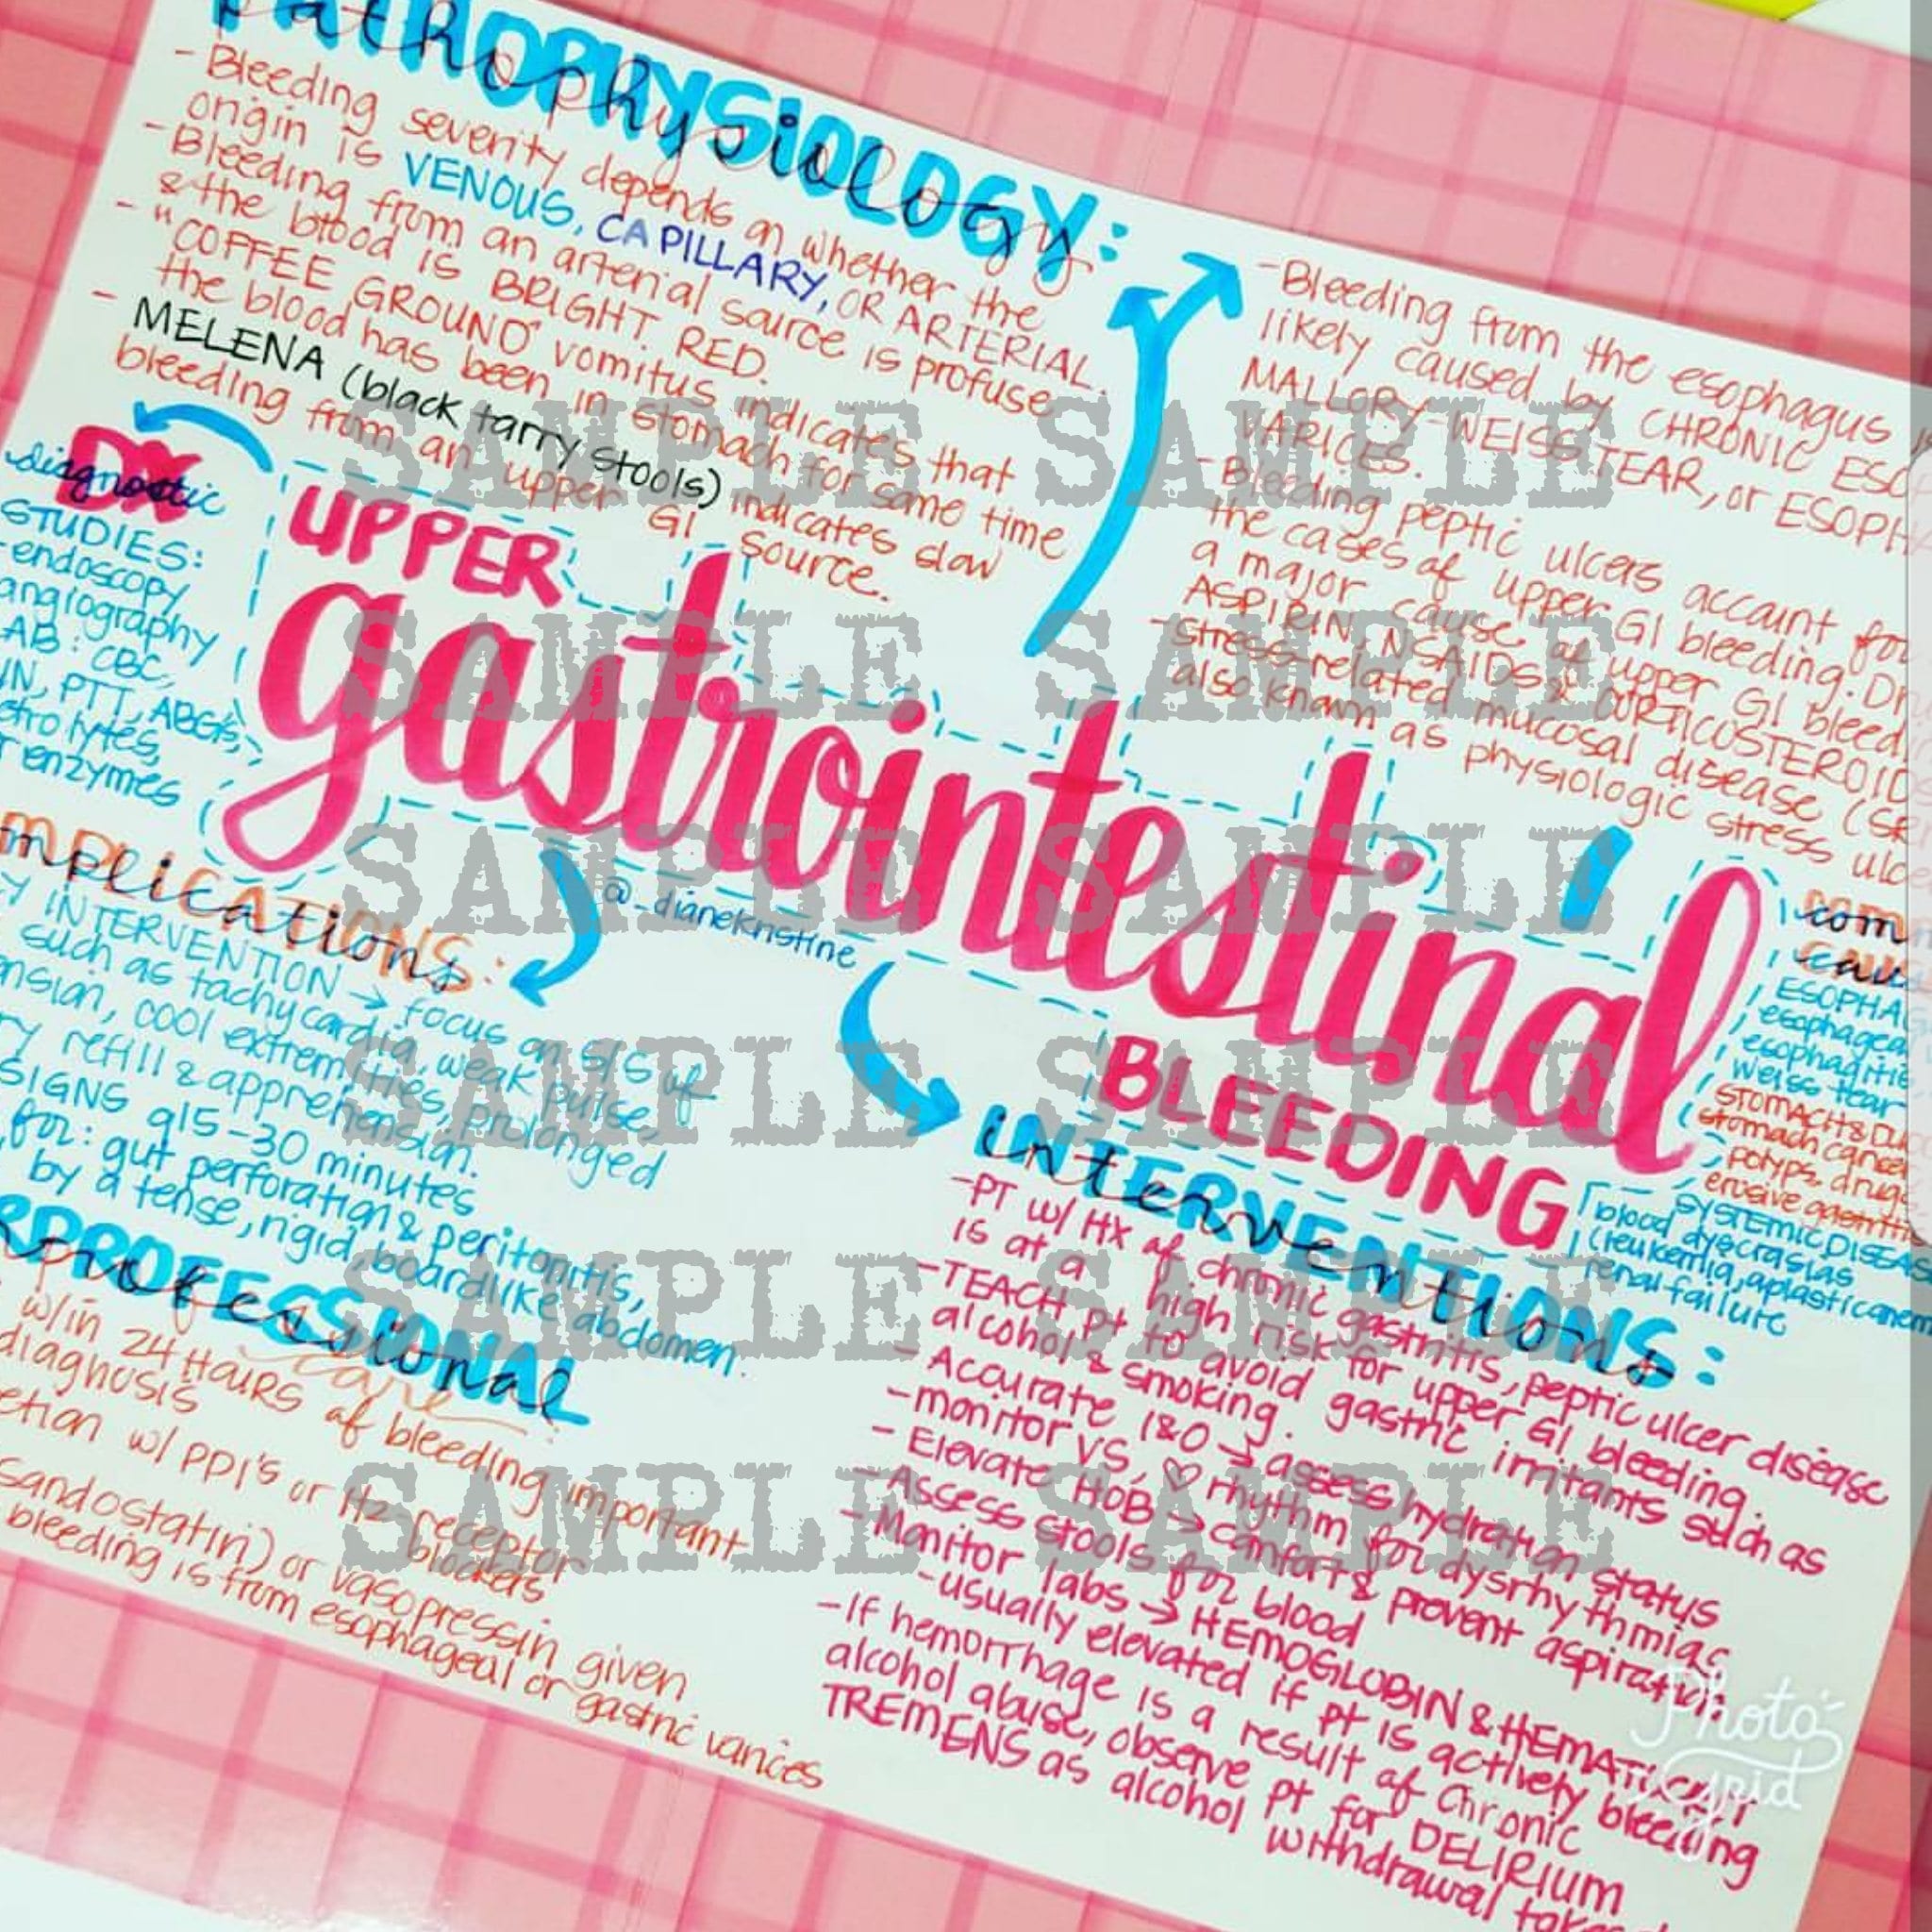 PATHOPHYSIOLOGY:
- Bleeding severity depends on whether the
origin is VENOUS, CAPILLARY, OR ARTERIAL.
- Bleeding from an arterial source is profuse
& the blood is BRIGHT RED.
- "COFFEE GROUND" vomitus indicates that
the blood has been in stomach for some time
- MELENA (black tarry stools) indicates slow
bleeding from an upper GI source.
- Bleeding from the esophagus
likely caused by CHRONIC ESO
MALLORY-WEISS TEAR, or ESOPHA
VARICES.
- Bleeding peptic ulcers account for
the cases of upper GI bleeding. Dr
a major cause of upper GI bleedi
ASPIRIN, NSAIDS & CORTICOSTEROID
- stress-related mucosal disease (SR
also known as physiologic stress ulce
DX
diagnostic
STUDIES:
- endoscopy
angiography
AB: CBC,
UN, PTT, ABG's,
ctrolytes,
r enzymes
UPPER
gastrointestinal
BLEEDING
@_dianekristine
mplications:
Y INTERVENTION → focus on S/S of
such as tachycardia, weak pulse,
nsion, cool extremities, prolonged
ry refill & apprehension.
SIGNS q15-30 minutes
for: gut perforation & peritonitis,
by a tense, rigid, boardlike abdomen.
RPROFESSIONAL
care
w/in 24 HOURS of bleeding important
diagnosis
etion w/ PPI's or H2 receptor
blockers
Sandostatin) or vasopressin given
bleeding is from esophageal or gastric varices
com
cau
ESOPHA
esophagea
esophagitis
Weiss tear
STOMACH & DU
stomach cancer
polyps, drug
erosive gastritis
SYSTEMIC DISEAS
blood dyscrasias
(leukemia, aplastic anem
renal failure
INTERVENTIONS:
- PT w/ HX of chronic gastritis, peptic ulcer disease
is at a high risk for upper GI bleeding.
- TEACH pt to avoid gastric irritants such as
alcohol & smoking.
- Accurate I&O → assess hydration status
- monitor VS, ♡ rhythm for dysrhythmias
- Elevate HOB → comfort & prevent aspiration
- Assess stools for blood
- Monitor labs → HEMOGLOBIN & HEMATOCRIT
- usually elevated if pt is actively bleeding
- If hemorrhage is a result of chronic
alcohol abuse, observe pt for DELIRIUM
TREMENS as alcohol withdrawal takes
SAMPLE SAMPLE
SAMPLE SAMPLE
SAMPLE SAMPLE
SAMPLE SAMPLE
SAMPLE SAMPLE
SAMPLE SAMPLE
Photo
grid